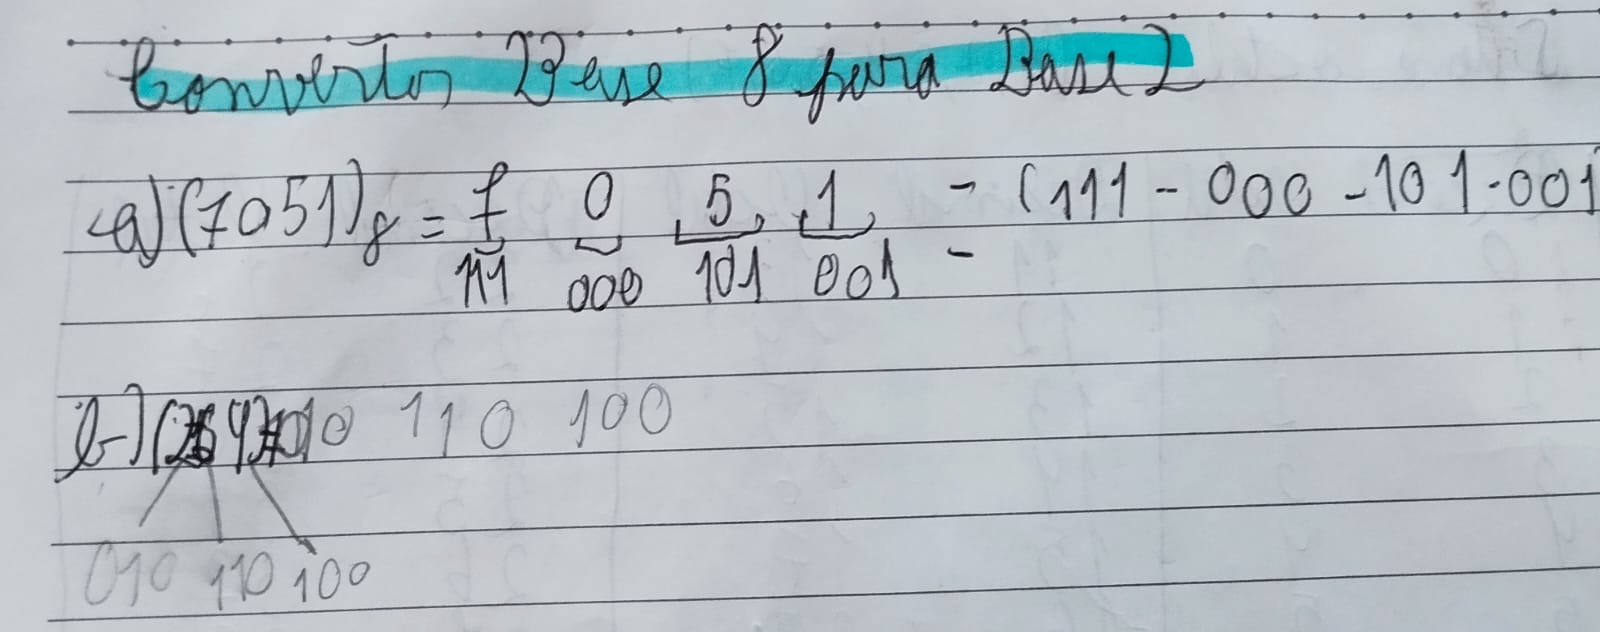 Converter Base 8 para Base 2
a) (7051)8 = 7 0 5 1 - (111 - 000 - 101 - 001
111 000 101 001 -
b) (264) 010 110 100
010 110 100